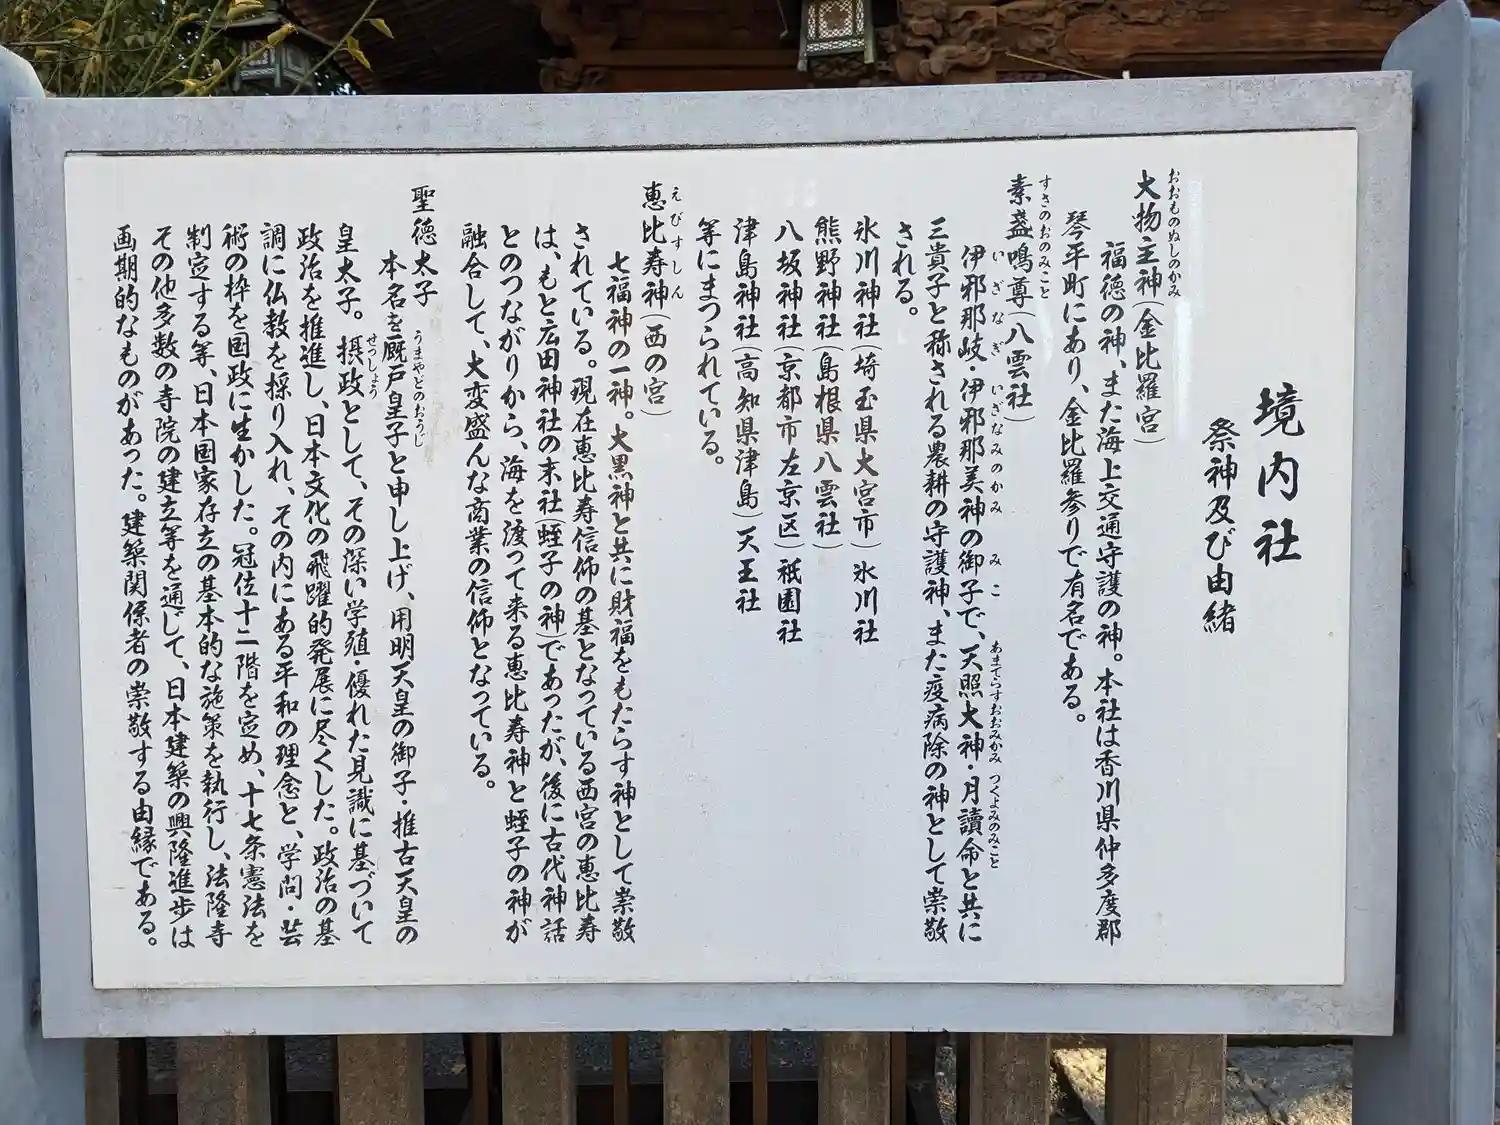 境内社
祭神及び由緒
大物主神（金比羅宮）
おおものぬしのかみ
福徳の神、また海上交通守護の神。本社は香川県仲多度郡
琴平町にあり、金比羅参りで有名である。
素盞鳴尊（八雲社）
すさのおのみこと
伊邪那岐・伊邪那美神の御子で、天照大神・月讀命と共に
いざなぎ いざなみのかみ みこ あまてらすおおみかみ つくよみのみこと
三貴子と称される農耕の守護神、また疫病除の神として崇敬
される。
氷川神社（埼玉県大宮市）氷川社
熊野神社（島根県八雲社）
八坂神社（京都市左京区）祇園社
津島神社（高知県津島）天王社
等にまつられている。
恵比寿神（西の宮）
えびすしん
七福神の一神。大黒神と共に財福をもたらす神として崇敬
されている。現在恵比寿信仰の基となっている西宮の恵比寿
は、もと広田神社の末社（蛭子の神）であったが、後に古代神話
とのつながりから、海を渡って来る恵比寿神と蛭子の神が
融合して、大変盛んな商業の信仰となっている。
聖徳太子
本名を厩戸皇子と申し上げ、用明天皇の御子・推古天皇の
うまやどのおうじ
皇太子。摂政として、その深い学殖・優れた見識に基づいて
せっしょう
政治を推進し、日本文化の飛躍的発展に尽くした。政治の基
調に仏教を採り入れ、その内にある平和の理念と、学問・芸
術の枠を国政に生かした。冠位十二階を定め、十七条憲法を
制定する等、日本国家存立の基本的な施策を執行し、法隆寺
その他多数の寺院の建立等を通じて、日本建築の興隆進歩は
画期的なものがあった。建築関係者の崇敬する由縁である。